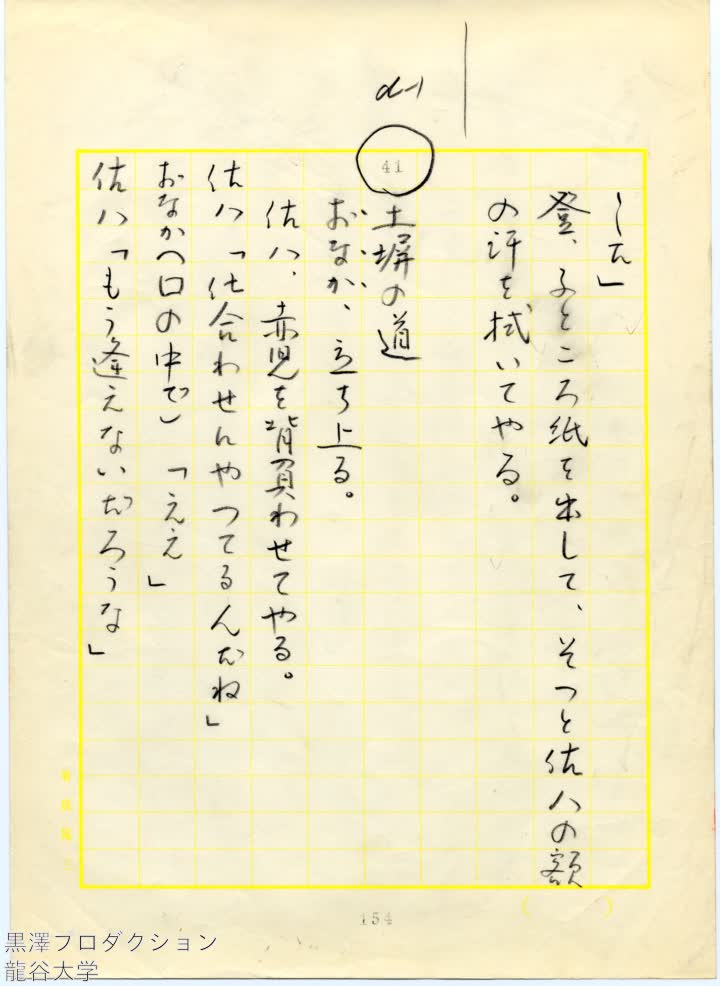 d-1
41
した」
登、ふところ紙を出して、そつと佐八の額
の汗を拭いてやる。
土塀の道
おなか、立ち上る。
佐八、赤児を背負わせてやる。
佐八「仕合わせにやつてるんだね」
おなか(口の中で)「ええ」
佐八「もう逢えないだろうな」
154
黒澤プロダクション
龍谷大学